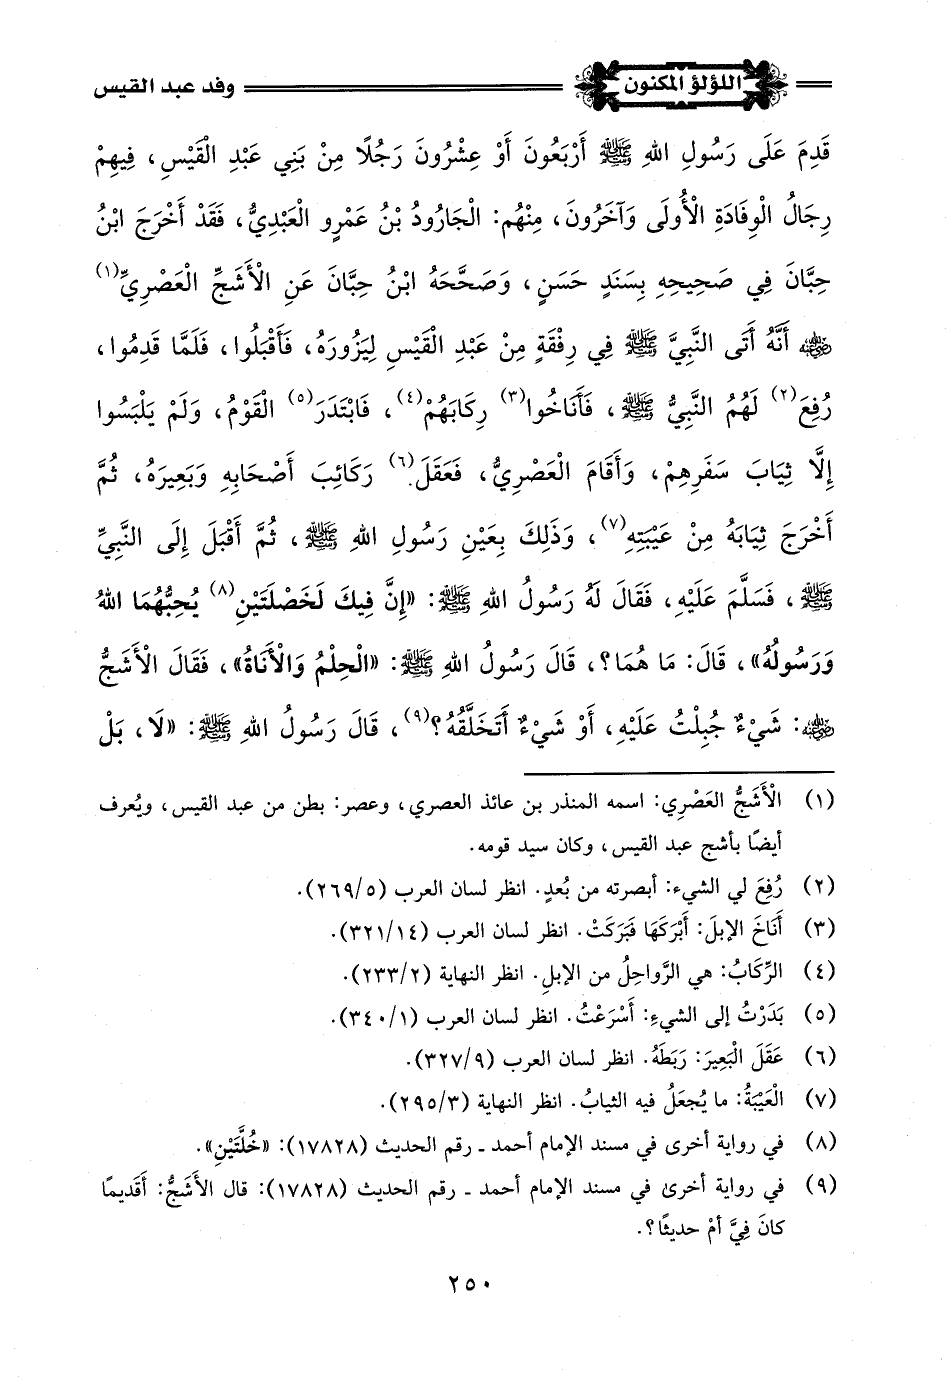 اللؤلؤ المكنون
وفد عبد القيس
قَدِمَ عَلَى رَسُولِ اللهِ ﷺ أَرْبَعُونَ أَوْ عِشْرُونَ رَجُلًا مِنْ بَنِي عَبْدِ الْقَيْسِ، فِيهِمْ
رِجَالُ الْوِفَادَةِ الْأُولَى وَآخَرُونَ، مِنْهُم: الْجَارُودُ بْنُ عَمْرٍو الْعَبْدِيُّ، فَقَدْ أَخْرَجَ ابْنُ
حِبَّانَ فِي صَحِيحِهِ بِسَنَدٍ حَسَنٍ، وَصَحَّحَهُ ابْنُ حِبَّانَ عَنِ الْأَشَجِّ الْعَصْرِيِّ(١)
رضي الله عنه أَنَّهُ أَتَى النَّبِيَّ ﷺ فِي رِفْقَةٍ مِنْ عَبْدِ الْقَيْسِ لِيَزُورَهُ، فَأَقْبَلُوا، فَلَمَّا قَدِمُوا،
رُفِعَ(٢) لَهُمُ النَّبِيُّ ﷺ، فَأَنَاخُوا(٣) رِكَابَهُمْ(٤)، فَابْتَدَرَ(٥) الْقَوْمُ، وَلَمْ يَلْبَسُوا
إِلَّا ثِيَابَ سَفَرِهِمْ، وَأَقَامَ الْعَصْرِيُّ، فَعَقَلَ(٦) رَكَائِبَ أَصْحَابِهِ وَبَعِيرَهُ، ثُمَّ
أَخْرَجَ ثِيَابَهُ مِنْ عَيْبَتِهِ(٧)، وَذَلِكَ بِعَيْنِ رَسُولِ اللهِ ﷺ، ثُمَّ أَقْبَلَ إِلَى النَّبِيِّ
ﷺ، فَسَلَّمَ عَلَيْهِ، فَقَالَ لَهُ رَسُولُ اللهِ ﷺ: «إِنَّ فِيكَ لَخَصْلَتَيْنِ(٨) يُحِبُّهُمَا اللهُ
وَرَسُولُهُ»، قَالَ: مَا هُمَا؟، قَالَ رَسُولُ اللهِ ﷺ: «الْحِلْمُ وَالْأَنَاةُ»، فَقَالَ الْأَشَجُّ
رضي الله عنه: شَيْءٌ جُبِلْتُ عَلَيْهِ، أَوْ شَيْءٌ أَتَخَلَّقُهُ؟(٩)، قَالَ رَسُولُ اللهِ ﷺ: «لَا، بَلْ
(١) الْأَشَجُّ العَصْرِي: اسمه المنذر بن عائذ العصري، وعصر: بطن من عبد القيس، ويُعرف
أيضًا بأشج عبد القيس، وكان سيد قومه.
(٢) رُفِعَ لي الشيء: أبصرته من بُعدٍ. انظر لسان العرب (٢٦٩/٥).
(٣) أَنَاخَ الإبلَ: أَبْرَكَهَا فَبَرَكَتْ. انظر لسان العرب (٣٢١/١٤).
(٤) الرِّكَابُ: هي الرَّواحِلُ من الإبلِ. انظر النهاية (٢٣٣/٢).
(٥) بَدَرْتُ إلى الشيءِ: أَسْرَعْتُ. انظر لسان العرب (٣٤٠/١).
(٦) عَقَلَ الْبَعِيرَ: رَبَطَهُ. انظر لسان العرب (٣٢٧/٩).
(٧) الْعَيْبَةُ: ما يُجعَلُ فيه الثيابُ. انظر النهاية (٢٩٥/٣).
(٨) في رواية أخرى في مسند الإمام أحمد ـ رقم الحديث (١٧٨٢٨): «خُلَّتَيْنِ».
(٩) في رواية أخرى في مسند الإمام أحمد ـ رقم الحديث (١٧٨٢٨): قال الأَشَجُّ: أَقَدِيمًا
كانَ فِيَّ أَمْ حديثًا؟.
٢٥٠